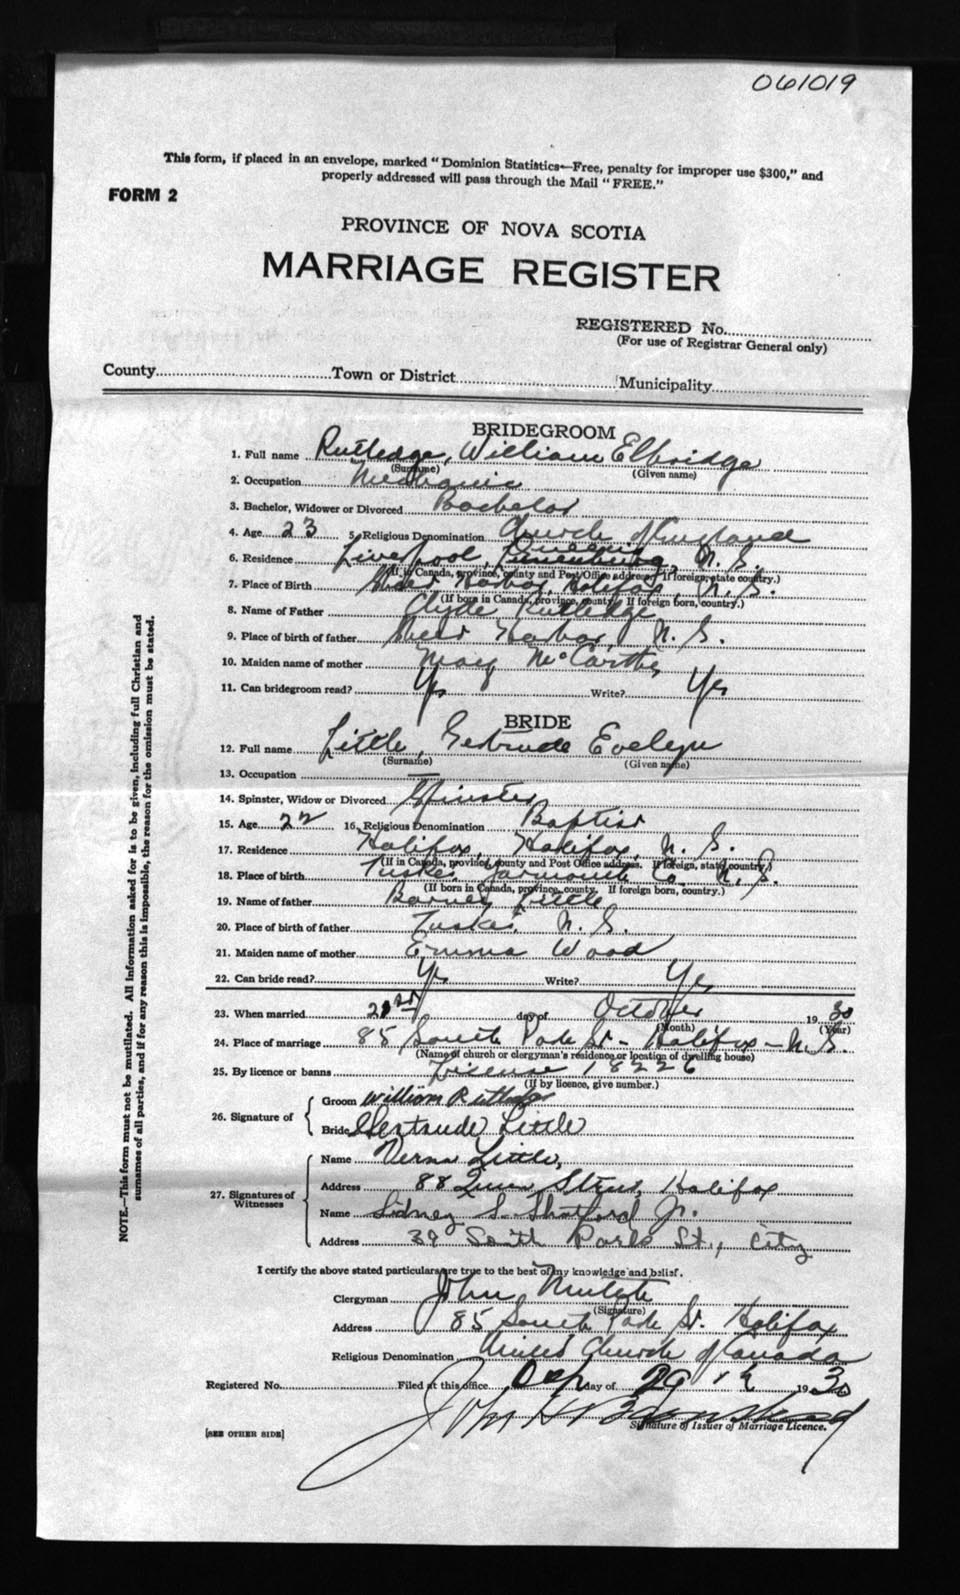 061019
This form, if placed in an envelope, marked "Dominion Statistics—Free, penalty for improper use $300," and
properly addressed will pass through the Mail "FREE."
FORM 2
PROVINCE OF NOVA SCOTIA
MARRIAGE REGISTER
REGISTERED No.
(For use of Registrar General only)
County Town or District Municipality
BRIDEGROOM
1. Full name Rutledge, William Elbridge
(Surname) (Given name)
2. Occupation Mechanic
3. Bachelor, Widower or Divorced Bachelor
4. Age 23 5. Religious Denomination Church of England
6. Residence Liverpool, Queens Lunenburg, N. S.
(If in Canada, province, county and Post Office address. If foreign, state country.)
7. Place of Birth Harbor, Halifax, N. S.
(If born in Canada, province, county. If foreign born, country.)
8. Name of Father Clyde Rutledge
9. Place of birth of father Harbor, N. S.
10. Maiden name of mother Mary McCarthy
11. Can bridegroom read? Yes Write? Yes
BRIDE
12. Full name Little, Gertrude Evelyn
(Surname) (Given name)
13. Occupation —
14. Spinster, Widow or Divorced Spinster
15. Age 22 16. Religious Denomination Baptist
17. Residence Halifax, Halifax, N. S.
(If in Canada, province, county and Post Office address. If foreign, state country.)
18. Place of birth Tusket Yarmouth Co. N. S.
(If born in Canada, province, county. If foreign born, country.)
19. Name of father Barney Little
20. Place of birth of father Tusket N. S.
21. Maiden name of mother Emma Wood
22. Can bride read? Yes Write? Yes
23. When married day of October 1930
(Month) (Year)
24. Place of marriage 85 South Park St - Halifax - N. S.
(Name of church or clergyman's residence or location of dwelling house)
25. By licence or banns License 18226
(If by licence, give number.)
26. Signature of
Groom William Rutledge
Bride Gertrude Little
27. Signatures of Witnesses
Name Verna Little,
Address 88 Queen Street, Halifax
Name Sidney S. Shatford Jr.
Address 39 South Park St., City
I certify the above stated particulars are true to the best of my knowledge and belief.
Clergyman John
(Signature)
Address 85 South Park St. Halifax
Religious Denomination United Church of Canada
Registered No. Filed at this office day of 1930
John H
Signature of Issuer of Marriage Licence.
[SEE OTHER SIDE]
NOTE.—This form must not be mutilated. All information asked for is to be given, including full Christian and
surnames of all parties, and if for any reason this is impossible, the reason for the omission must be stated.